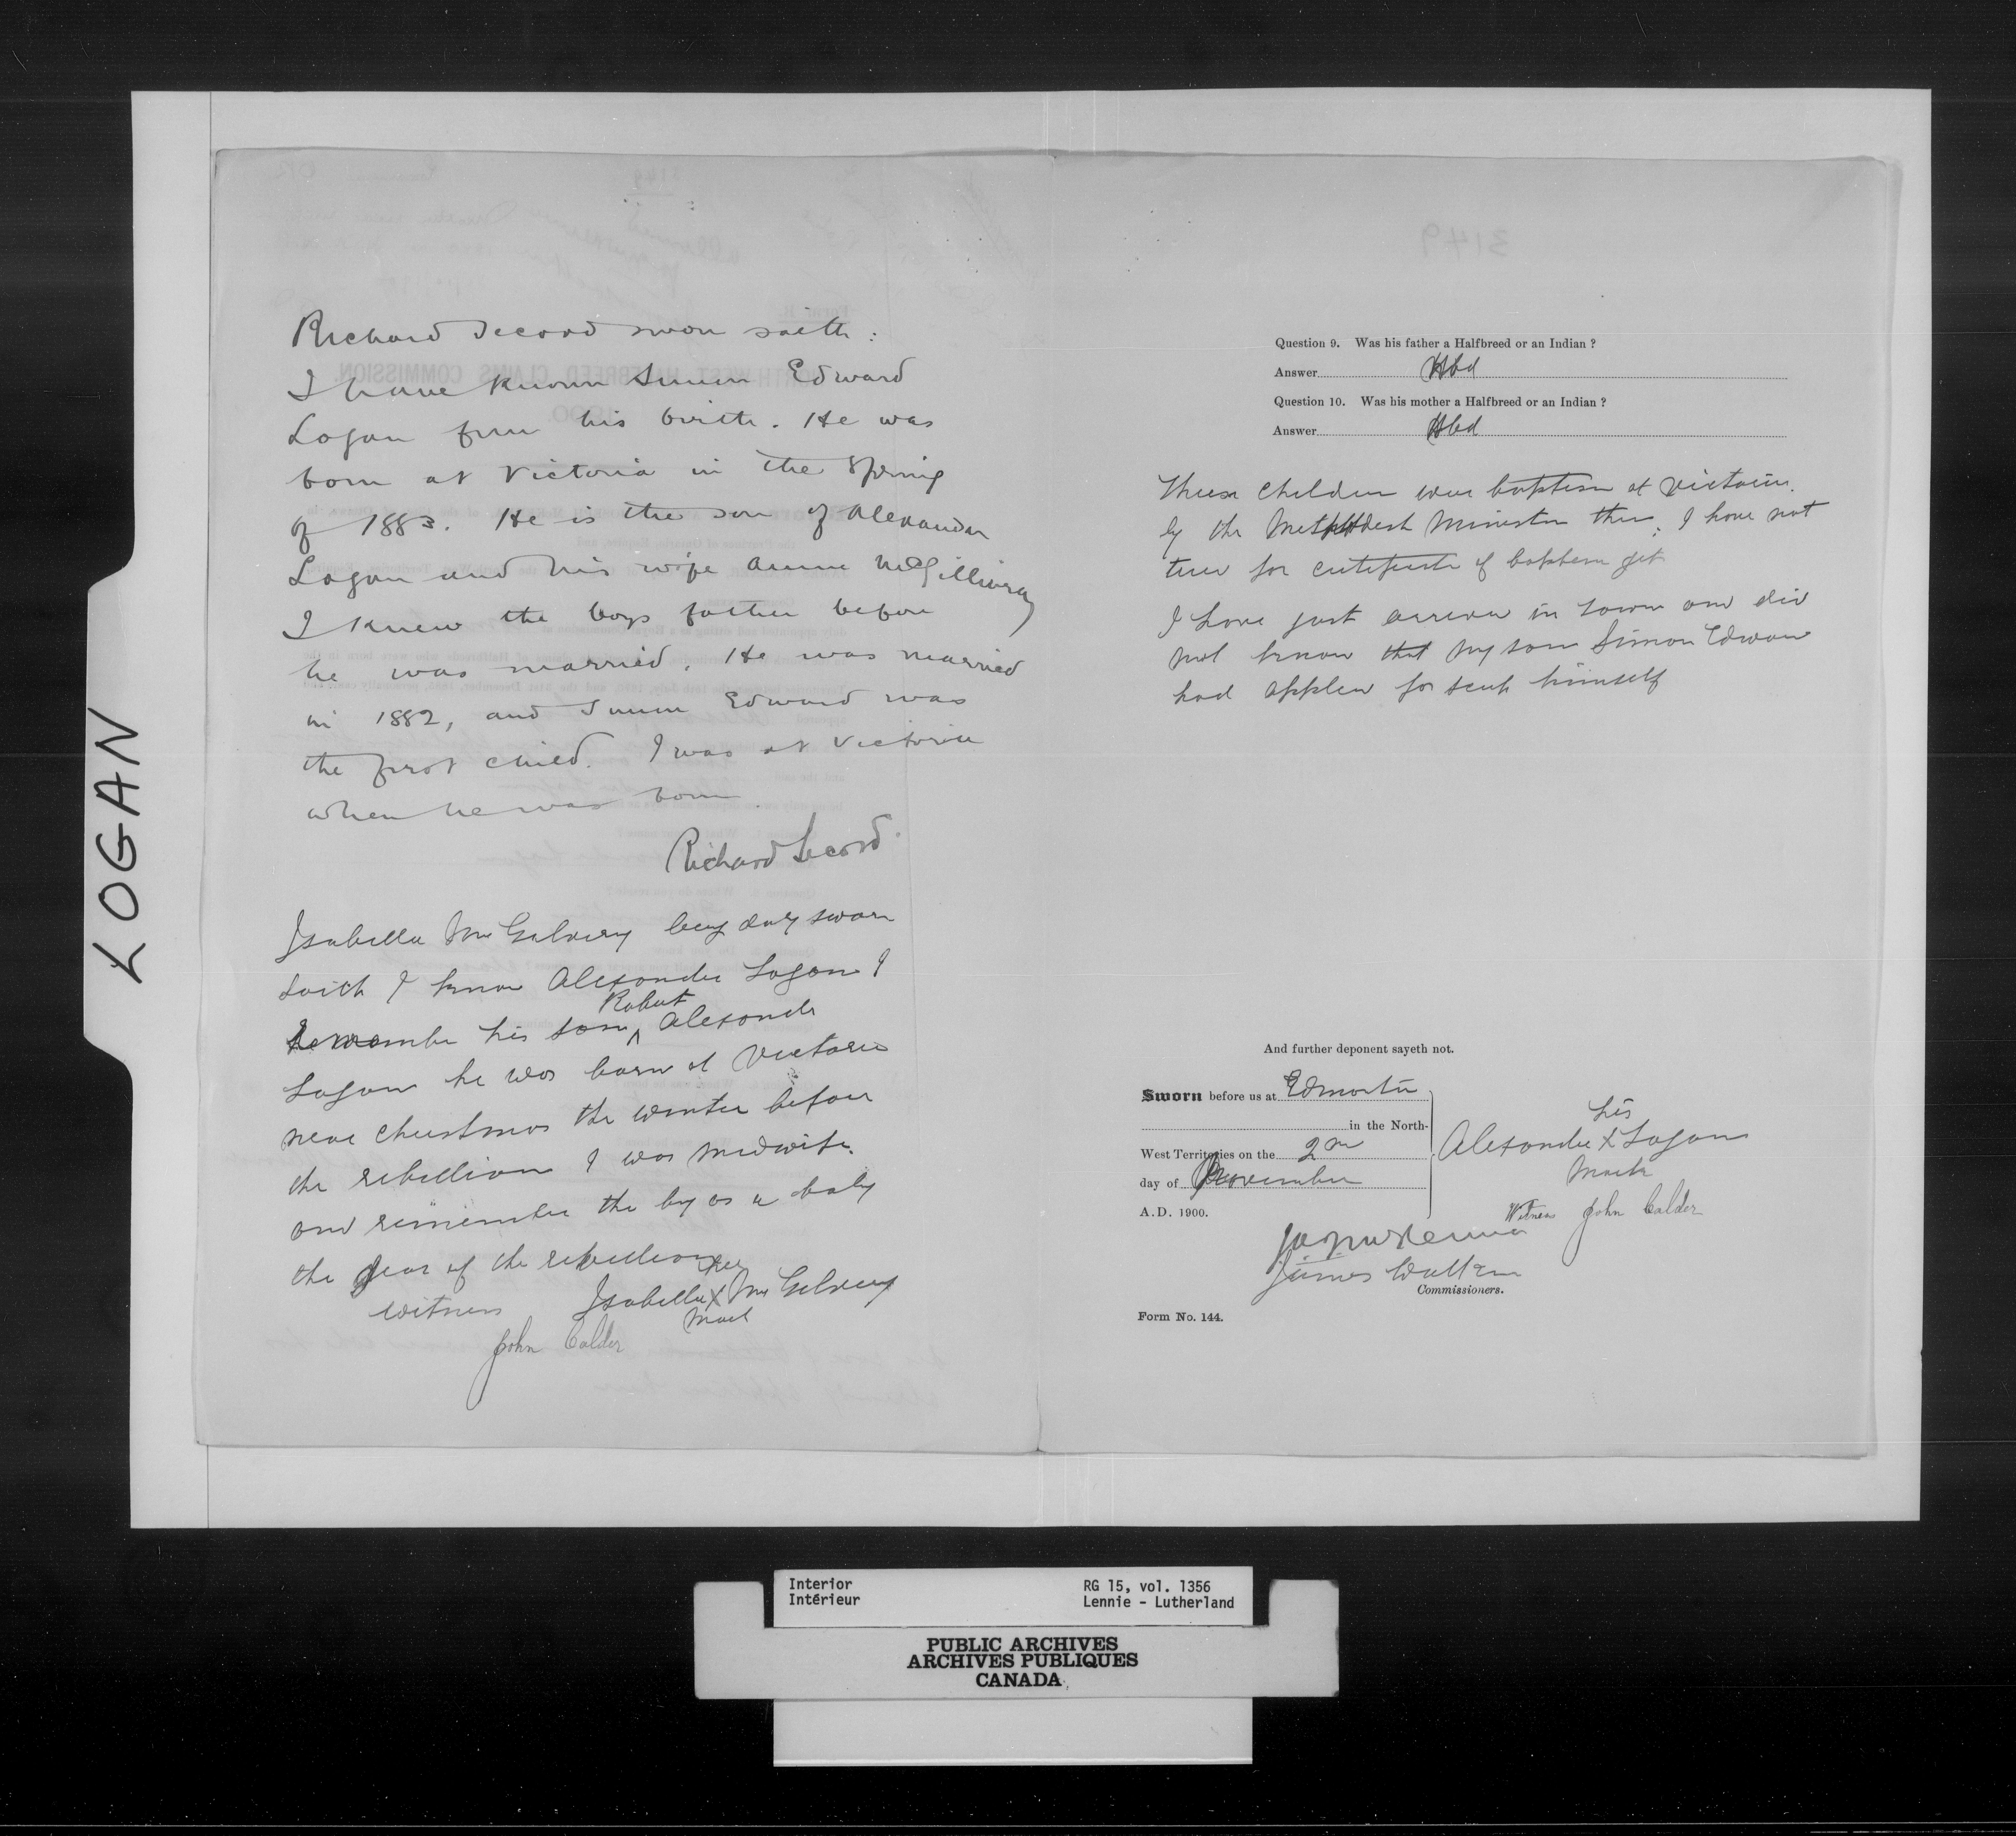 LOGAN
Richard Secord sworn saith :
I have known Simon Edward
Logan from his birth. He was
born at Victoria in the Spring
of 1883. He is the son of Alexander
Logan and his wife Annie McGillivray
I knew the boys father before
he was married. He was married
in 1882, and Simon Edward was
the first child. I was at Victoria
when he was born
Richard Secord.
Isabella McGilvery being duly sworn
saith I know Alexander Logan I
Robert
remember his son ^ Alexander
Logan he was born at Victoria
near Christmas the winter before
the rebellion I was midwife
and remember the boy as a baby
the year of the rebellion
her
Isabella X McGilvery
mark
witness
John Calder
3149
Question 9. Was his father a Halfbreed or an Indian ?
Answer Hbd
Question 10. Was his mother a Halfbreed or an Indian ?
Answer Hbd
These children were baptism at Victoria.
by the Methodist Minister there; I have not
time for certificate of baptism yet
I have just arrived in town and did
not know that my son Simon Edward
had applied for scrip himself
And further deponent sayeth not.
Sworn before us at Edmonton
in the North-
West Territories on the 2nd
day of November
A.D. 1900.
his
Alexander X Logan
mark
Witness John Calder
James Walker
Commissioners.
Form No. 144.
Interior
Intérieur
RG 15, vol. 1356
Lennie - Lutherland
PUBLIC ARCHIVES
ARCHIVES PUBLIQUES
CANADA